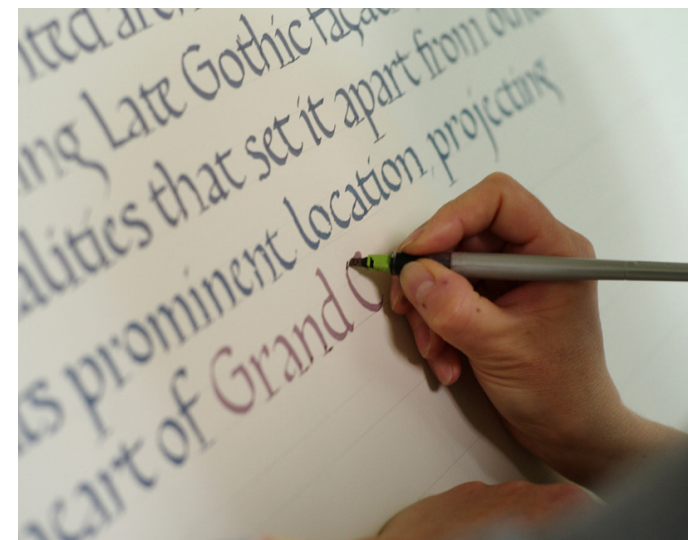 ited are
ing Late Gothic façad
alities that set it apart from othe
ts prominent location, projecting
eart of Grand C